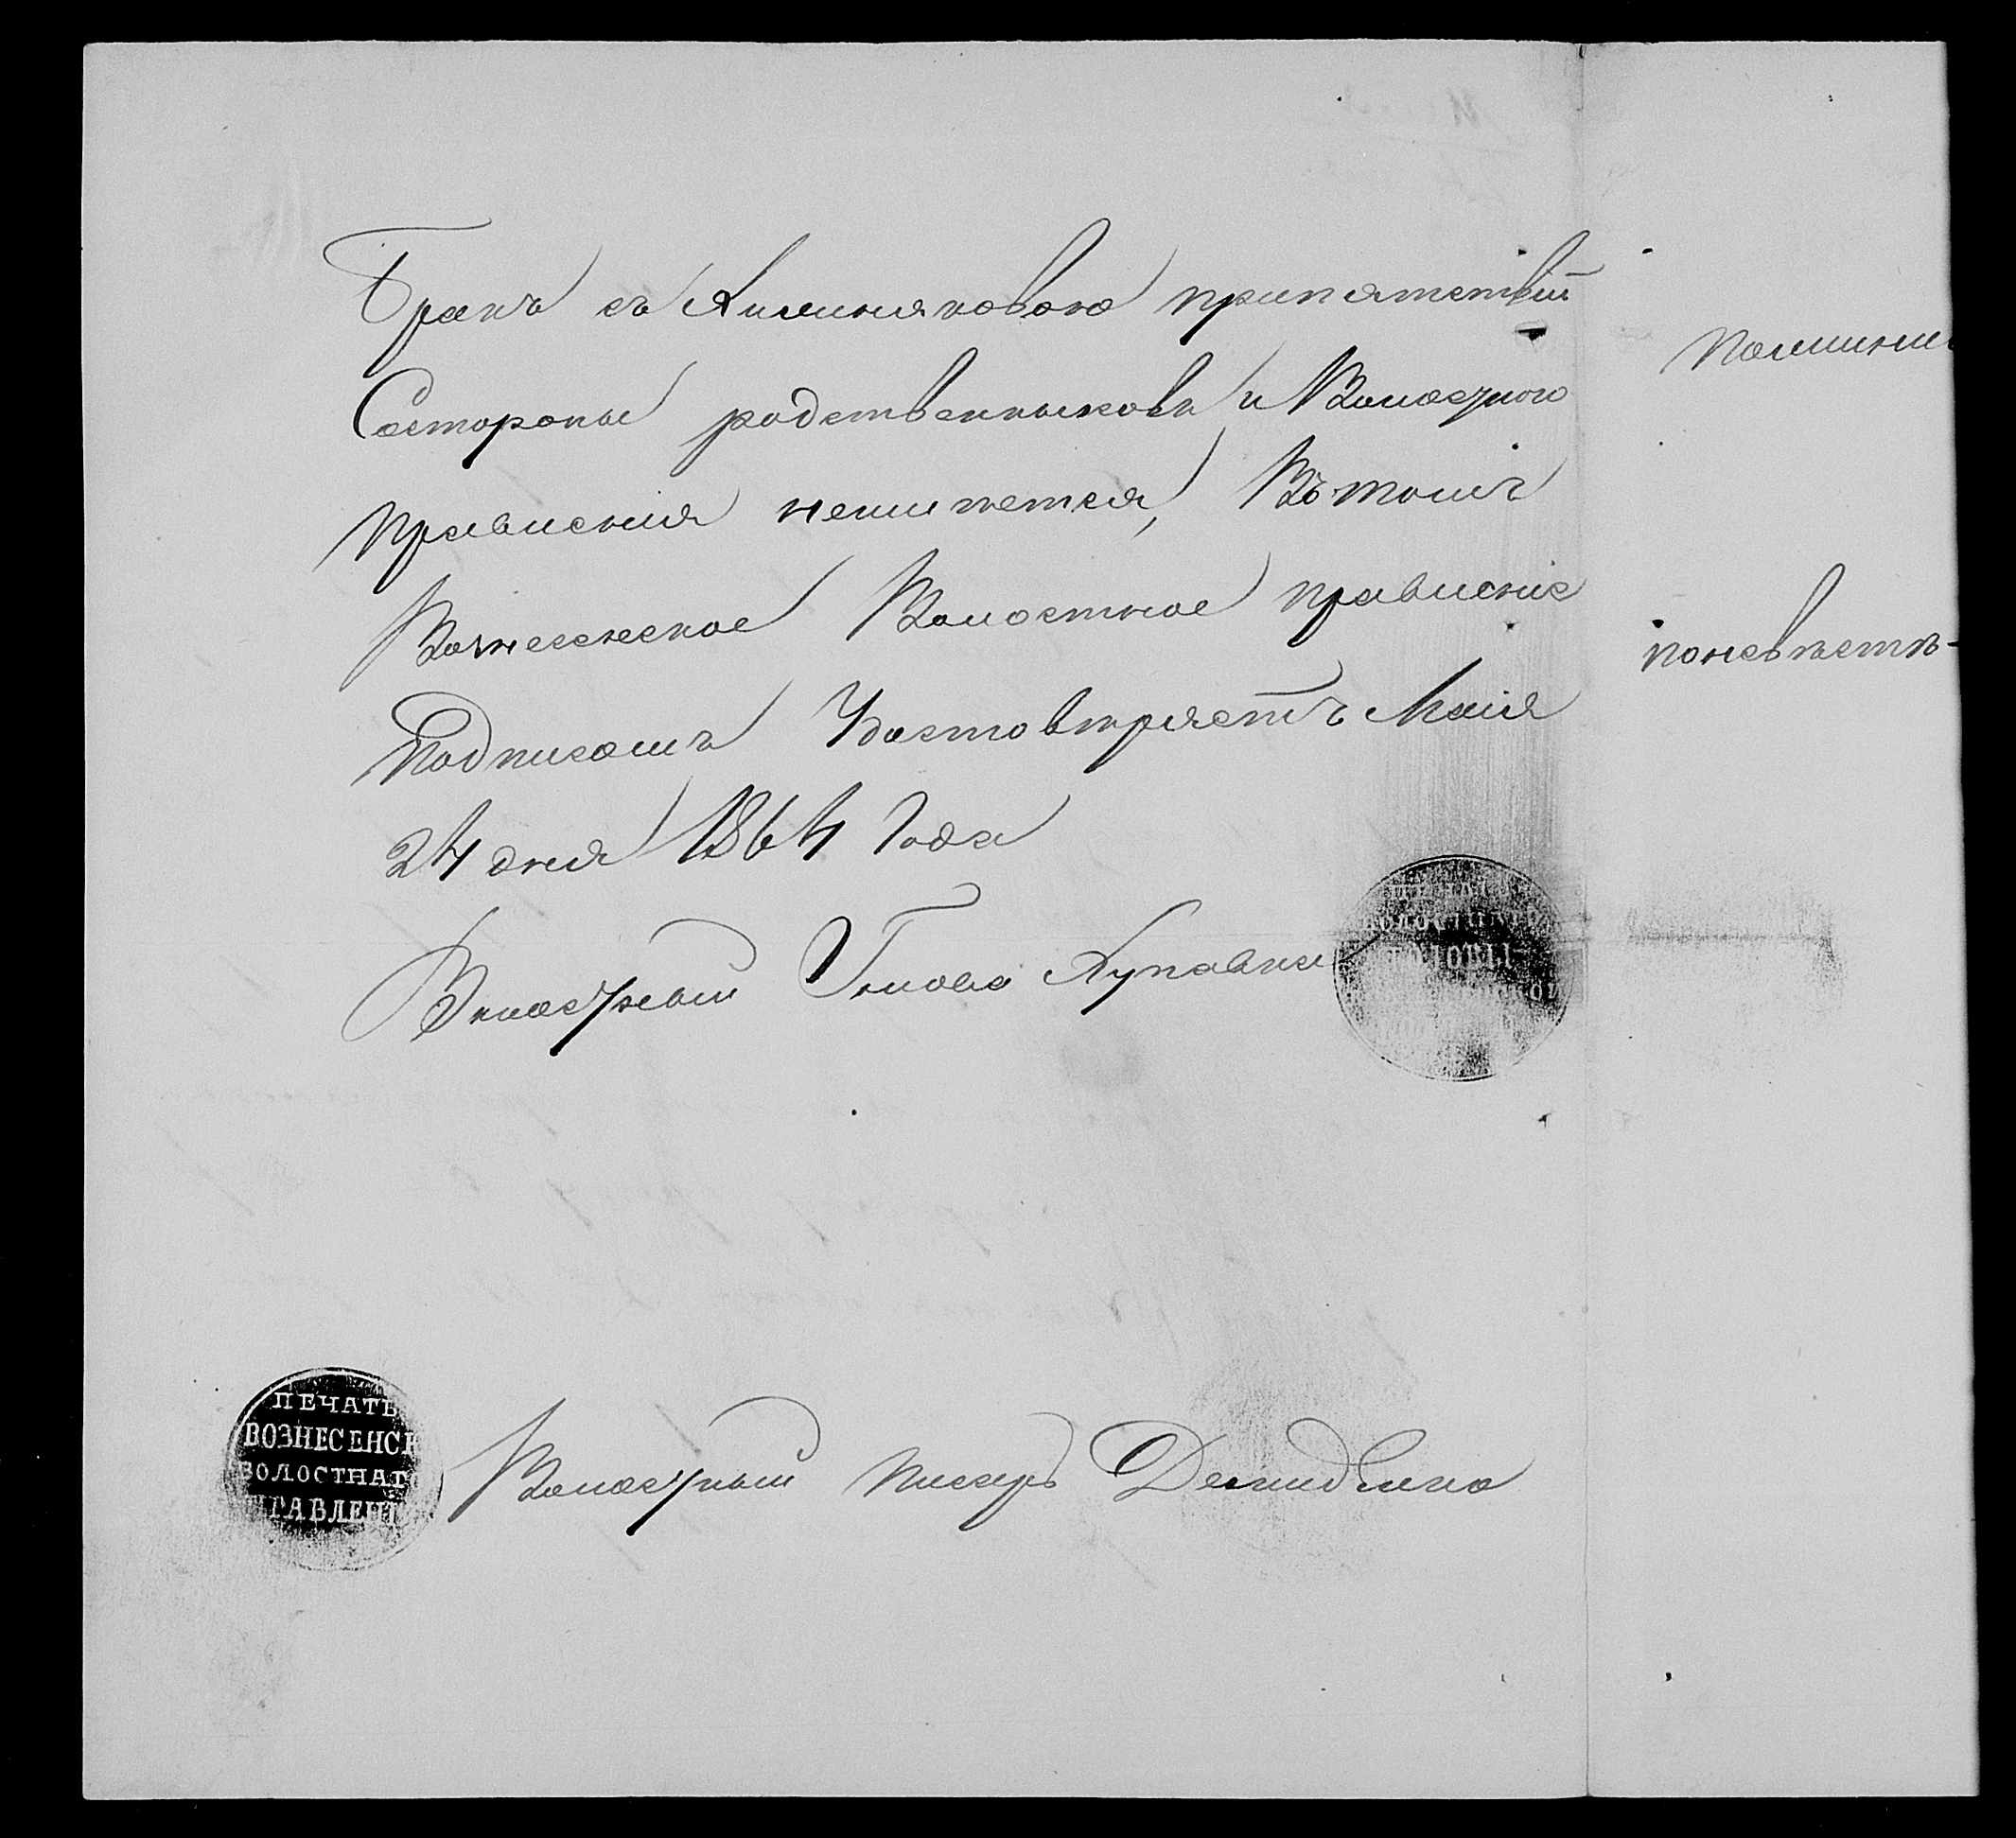 Бракъ съ Акименковою припятствій
Состороны родственныковъ и Волостного
правленія неимѣется, Въ томъ
Вознесенское Волостное правленіе
Подписомъ Удостовѣряетъ Маія
24 дня 1864 Года
Волостный Голова Лупавка
ПЕЧАТЬ
ВОЗНЕСЕНСК
ВОЛОСТНАГ
ПРАВЛЕНІ
Волостный писарь
поневѣстѣ